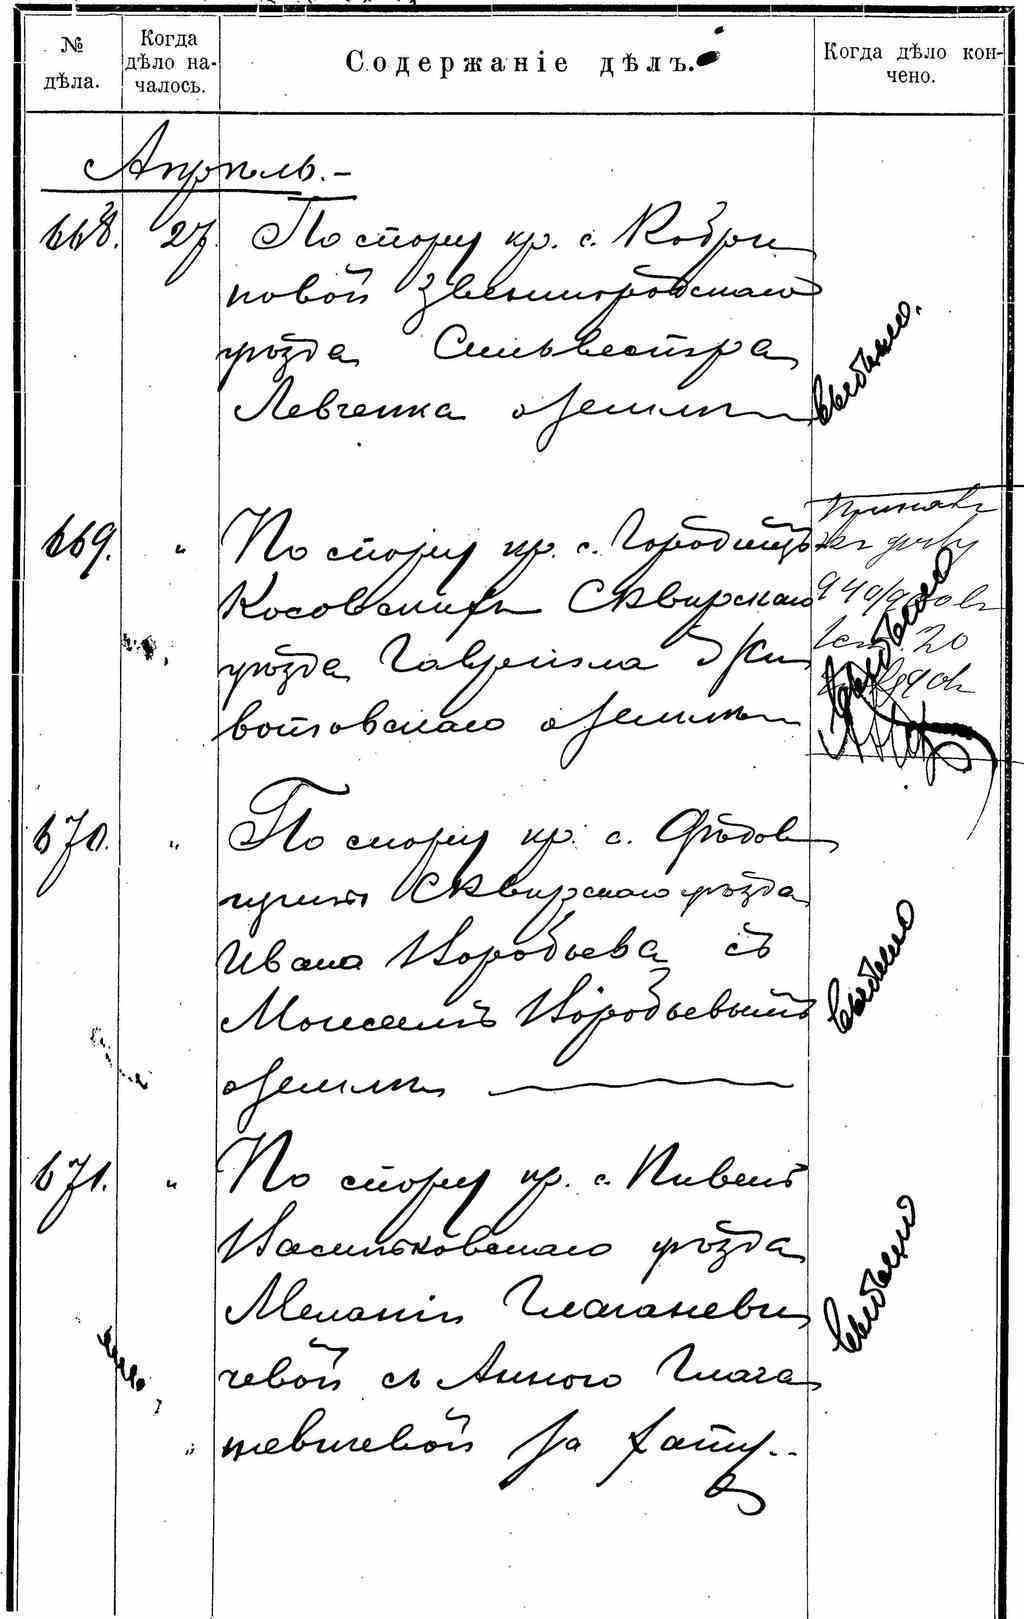 № дѣла.
Когда дѣло на-
чалось.
Содержаніе дѣлъ.
Когда дѣло кон-
чено.
Апрѣль.-
668. 27. По спору кр. с. Кобри
новой Звенигородскаго
уѣзда Сильвестра
Левченка о землѣ
выбыло.
669. " По спору кр. с. Городищъ
Косовскихъ Сквирскаго
уѣзда Гавріила Жи
вотовскаго о землѣ
выбыло
670. " По спору кр. с. Ѳедов
Сквирскаго уѣзда
Ивана Воробьева съ
Моисеемъ Воробьевымъ
о землѣ
выбыло
671. " По спору кр. с. Пивень
Васильковскаго уѣзда
Меланіи Глаганеви
чевой съ Анною Глага
невичевой за хату.
выбыло